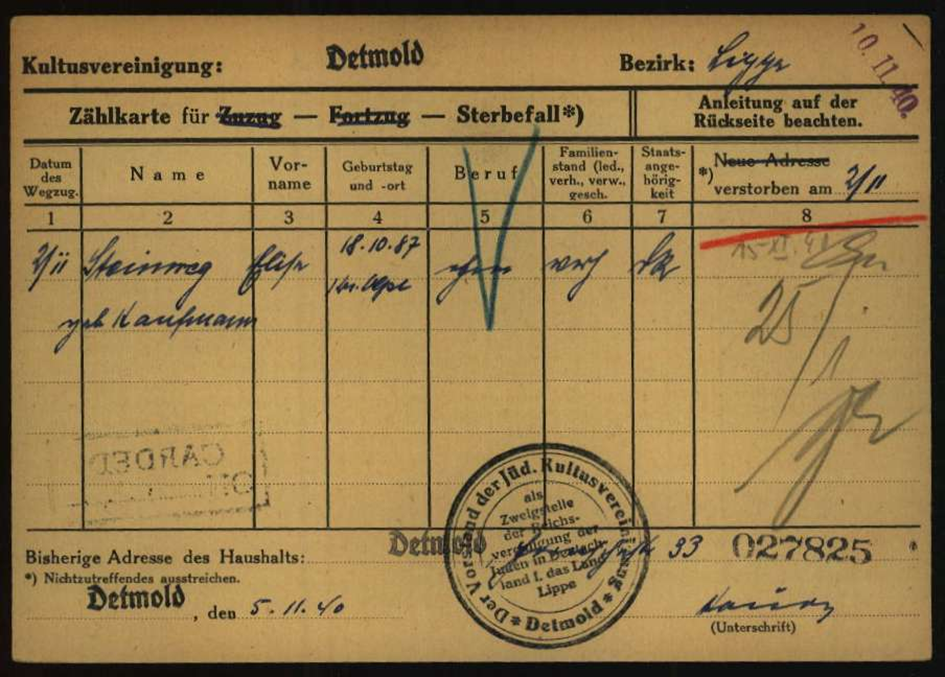 Kultusvereinigung: Detmold Bezirk: Lippe
10.11.40.
Zählkarte für Zuzug — Fortzug — Sterbefall*)
Anleitung auf der
Rückseite beachten.
Datum
des
Wegzug.
Name
Vor-
name
Geburtstag
und -ort
Beruf
Familien-
stand (led.,
verh., verw.,
gesch.
Staats-
ange-
hörig-
keit
Neue Adresse
*) verstorben am 2/11
1 2 3 4 5 6 7 8
2/11 Steinweg Elise 18.10.87 verh
geb Kaufmann
25
CARDED
Der Vorstand der Jüd. Kultusvereinigung * Detmold *
als
Zweigstelle
der Reichs-
vereinigung der
Juden in Deutsch-
land f. das Land
Lippe
Bisherige Adresse des Haushalts: Detmold 33 027825
*) Nichtzutreffendes ausstreichen.
Detmold, den 5.11.40
(Unterschrift)